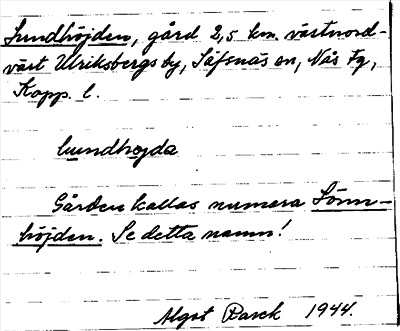 Lundhöjden, gård 2,5 km. västnord-
väst Ulriksbergs by, Säfsnäs sn, Nås Fg,
Kopp. l.
lundhøjda
Gården kallas numera Sönn-
höjden. Se detta namn!
Algot 1944.